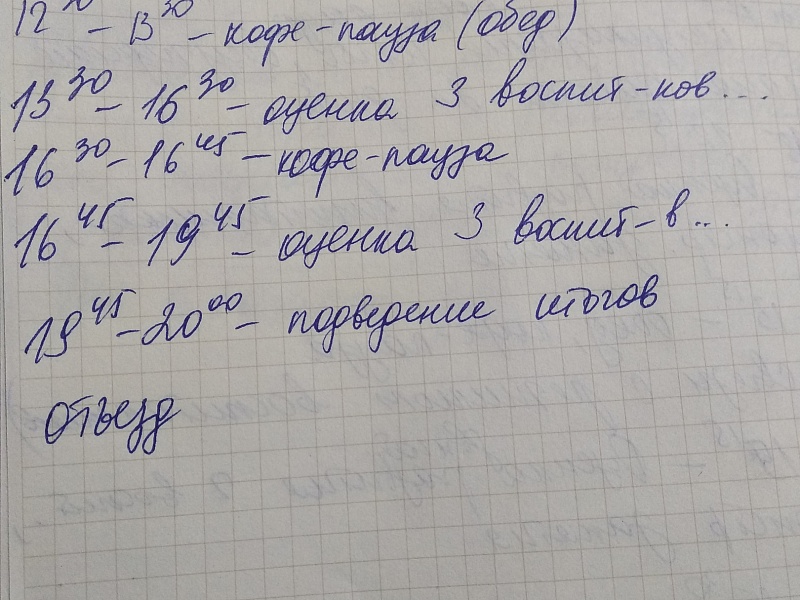 12³⁰ – 13³⁰ – кофе-пауза (обед)
13³⁰ – 16³⁰ – оценка 3 воспит-ков...
16³⁰ – 16⁴⁵ – кофе-пауза
16⁴⁵ – 19⁴⁵ – оценка 3 воспит-в...
19⁴⁵ – 20⁰⁰ – подведение итогов
отъезд